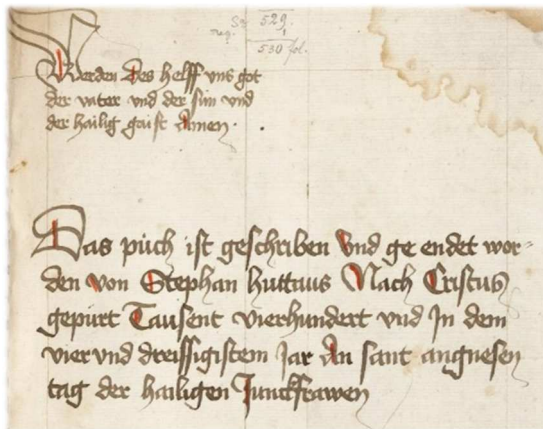 529
1
530 fol.
Werden Des helff vns got
der vater vnd der sun vnd
der hailig gaist Amen.
Das púch ist geschriben Vnd ge endet wor=
den von Stephan huttaus Nach Cristus
gepúrt Tausent vierhundert vnd In dem
vier vnd dreissigistem Jar An sant angnesen
tag der hailigen Junckfrawen